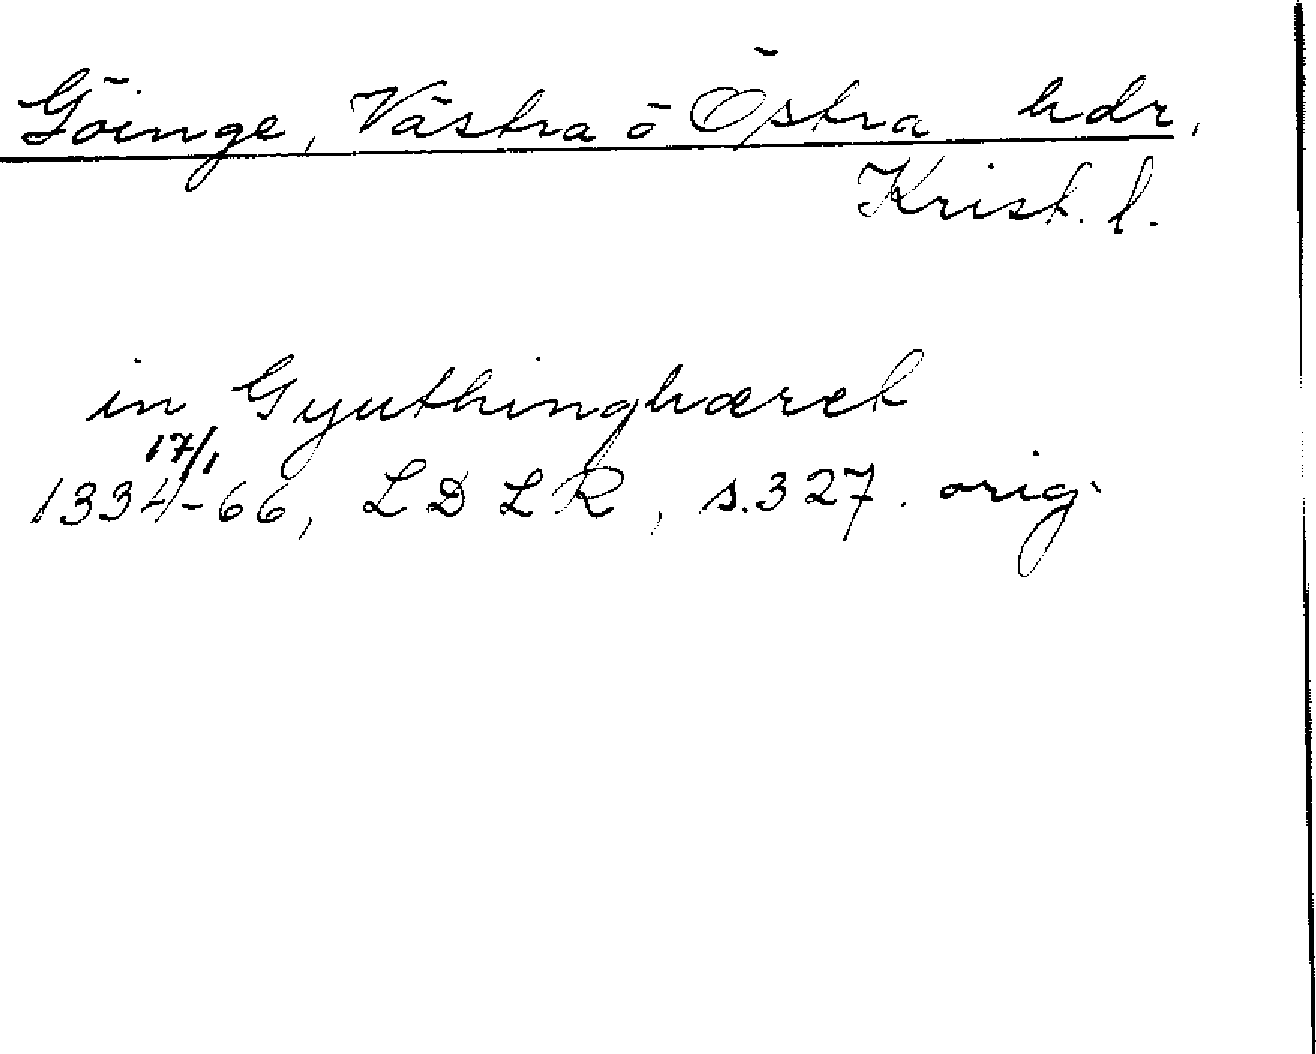 Göinge, Västra o Östra hdr,
Krist. l.
in Gyuthinghæret
17/1
1334-66, LDLR, s.327. orig.